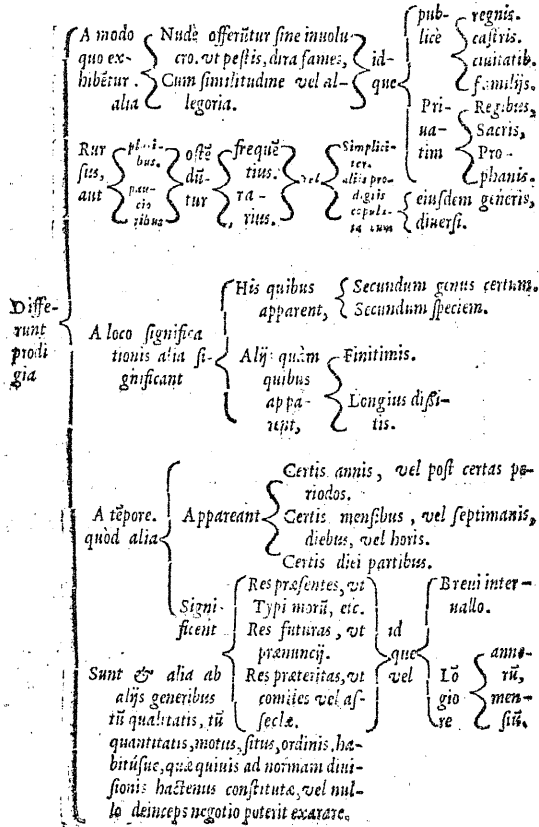 Differunt
prodi
gia
A modo
quo ex-
hibētur.
alia
Nudè offerūtur sine inuolu
cro. vt pestis, dira fames,
Cum similitudine vel al-
legoria.
id-
que
pub-
licè
regnis.
castris.
ciuitatib.
familijs.
Pri-
ua-
tim
Regibus,
Sacris,
Pro-
phanis.
Rur
sus,
aut
pluri-
bus.
pau-
cio
ribus
ostē
dū-
tur
frequē
tius.
ra-
rius.
vel
Simplici-
ter.
alijs pro-
digijs
copula-
ta cum
eiusdem generis,
diuersi.
A loco significa
tionis alia si-
gnificant
His quibus
apparent,
Secundum genus certum.
Secundum speciem.
Alijs quàm
quibus
appa-
rent,
Finitimis.
Longius dissi-
tis.
A tēpore.
quòd alia
Appareant
Certis annis, vel post certas pe-
riodos.
Certis mensibus, vel septimanis,
diebus, vel horis.
Certis diei partibus.
Signi-
ficent
Res præsentes, vt
Typi morū, etc.
Res futuras, vt
prænuncij.
Res præteritas, vt
comites vel as-
seclæ.
id
que
vel
Breui inter-
uallo.
Lō
gio
re
anno-
rū,
men-
siū.
Sunt & alia ab
alijs generibus
tū qualitatis, tū
quantitatis, motus, situs, ordinis, ha-
bitúsue, quæ quiuis ad normam diui-
sionis hactenus constitutæ, vel nul-
lo deinceps negotio poterit exarare.